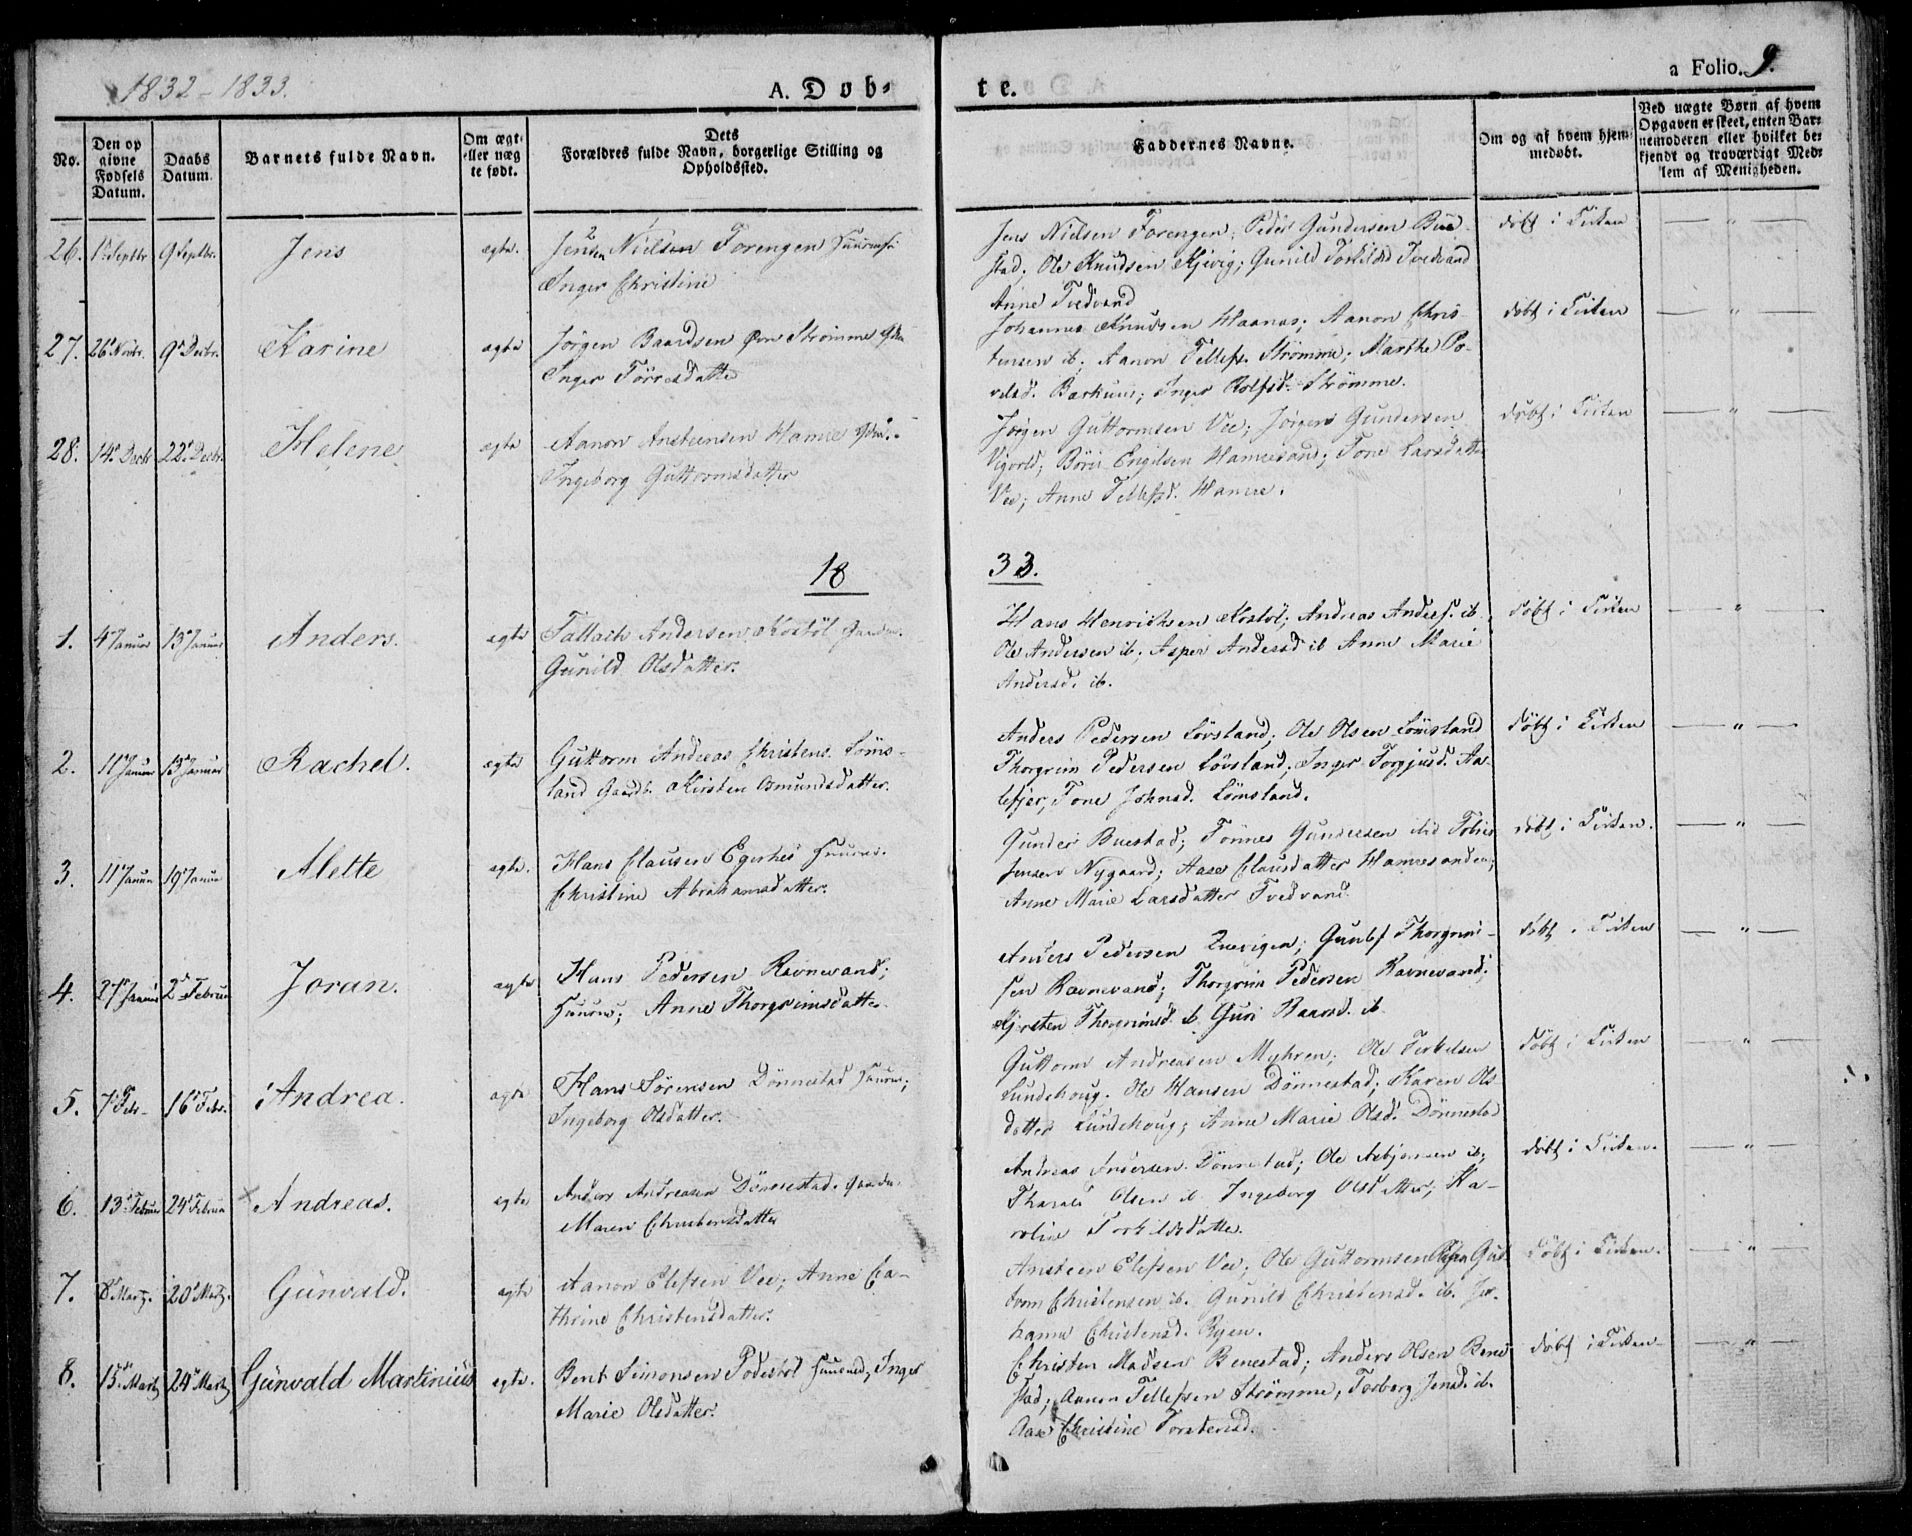 1832-1833.
A. Døb-
te.
a Folio. 9.
No.
Den opgivne Fødsels Datum.
Daabs Datum.
Barnets fulde Navn.
Om ægte eller nægte født.
Dets Forældres fulde Navn, borgerlige Stilling og Opholdssted.
Faddernes Navne.
Om og af hvem hjemmedøbt.
Ved uægte Børn af hvem Opgaven er skeet, enten Barnemoderen eller hvilket bekjendt og troværdigt Medlem af Menigheden.
26. 1 Septbr 9 Septbr. Jens ægte. Jens Nielsen Forengen
Inger Christine
Jens Nielsen Forengen; Peder Gundersen Bue-
stad; Ole Knudsen Kjevig; Gunild Torkildsd Tvedvand
Anne Tvedvand
døbt i Kirken
27. 26 Novbr. 9 Decbr. Karine ægte Jørgen Baardsen Øvre Strømme
Inger Tørresdatter
Johannes Knudsen Haanas; Aanon Chris-
tensen ib; Aanon Tellefs. Strømme; Marthe Po-
velsd. Barkum; Inger Rolfsd. Strømme.
døbt i Kirken
28. 14 Decbr 22 Decbr. Helene ægte Aanon Ansteensen Hamre
Ingeborg Guttormsdatter
Jørgen Guttormsen Vee; Jørgen Gundersen
Vigvold; Børe Engelsen Hamresand; Tone Larsdatter
Vee; Anne Tellefsd. Hamre.
døbt i Kirken
18 33.
1. 4 Januar 13 Januar Anders. ægte Tallach Andersen Kostøl Gaardm.
Gunild Olsdatter.
Hans Henrichsen Kostøl; Andreas Anders. ib.
Ole Andersen ib; Asper Andersd ib Anne Marie
Andersd. ib.
døbt i Kirken
2. 11 Januar 13 Januar Rachel. ægte Guttorm Andreas Christens. Løms-
land Gaardb. Kirsten Omundsdatter.
Anders Pedersen Løvsland; Ole Olsen Lømsland
Thorgrim Pedersen Løvsland; Inger Torgjusd. Aa-
lefjer; Tone Johnsd. Lømsland.
døbt i Kirken
3. 11 Januar 19 Januar Alette ægte. Hans Clausen Egerhei
Christine Abrahamsdatter.
Gunder Buestad; Tønnes Gundersen ibid Tobias
Jensen Nygaard; Aase Clausdatter Hamresanden;
Anne Marie Larsdatter Tvedvand.
døbt i Kirken.
4. 27 Januar 2 Februar Joran. ægte Hans Pedersen Ravnevand;
Huusm; Anne Thorgrimsdatter.
Anders Pedersen; Gunlef Thorgrim-
sen Ravnevand; Thorgrim Pedersen Ravnevand;
Kjersten Thorgrimsd. ib Guri Baarsd. ib.
døbt i Kirken
5. 7 Febr. 16 Febr. Andrea. ægte Hans Sørensen Dønnestad Huusm;
Ingeborg Olsdatter.
Guttorm Andreasen Myhren; Ole Terkelsen
Lundehoug. Ole Hansen Dønnestad; Karen Ols-
datter Lundehoug; Anne Marie Olsd. Dønnestad
døbt i Kirken
6. 13 Februar 24 Februar Andreas. ægte Anders Andreasen Dønnestad. Gaardm.
Maren Christensdatter
Andreas Andersen Dønnestad; Ole Asbjørnsen ib;
Tharald Olsen ib. Ingeborg Olsdatter; Ka-
roline Torkildsdatter.
døbt i Kirken.
7. 8 Marts. 20 Marts. Gunvald. ægte Aanon Elefsen Vee; Anne Ca-
thrine Christensdatter.
Ansteen Elefsen Vee; Ole Guttormsen Gut-
torm Christensen ib. Gunild Christensd. ib. Jo-
hanne Christensd. Ryen.
døbt i Kirken.
8. 15 Marts 24 Marts Gunvald Martinius ægte. Bent Simonsen Fodestøl Huusmd; Inger
Marie Olsdatter.
Christen Madsen Benestad; Anders Olsen Bene-
stad; Aanon Tellefsen Strømme; Torborg Jensd. ib.
Aase Christine Torstensd.
døbt i Kirken